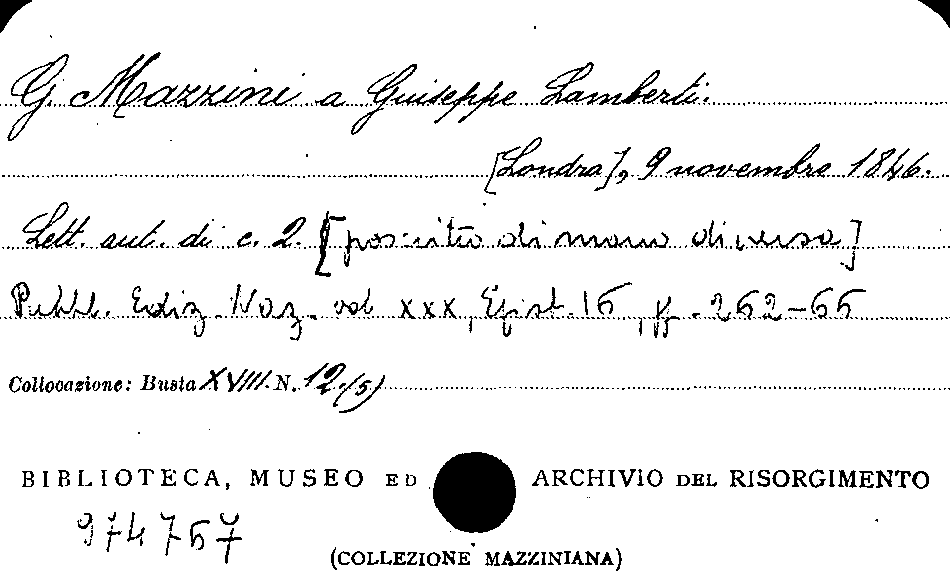 G. Mazzini a Giuseppe Lamberti.
[Londra], 9 novembre 1846.
Lett. aut. di c. 2. [poscritto di mano diversa]
Pubbl. Ediz. Naz. vol XXX, Epist. 16, pp. 262-66
Collocazione: Busta XVIII. N. 12.(5)
BIBLIOTECA, MUSEO ED ARCHIVIO DEL RISORGIMENTO
974767
(COLLEZIONE MAZZINIANA)